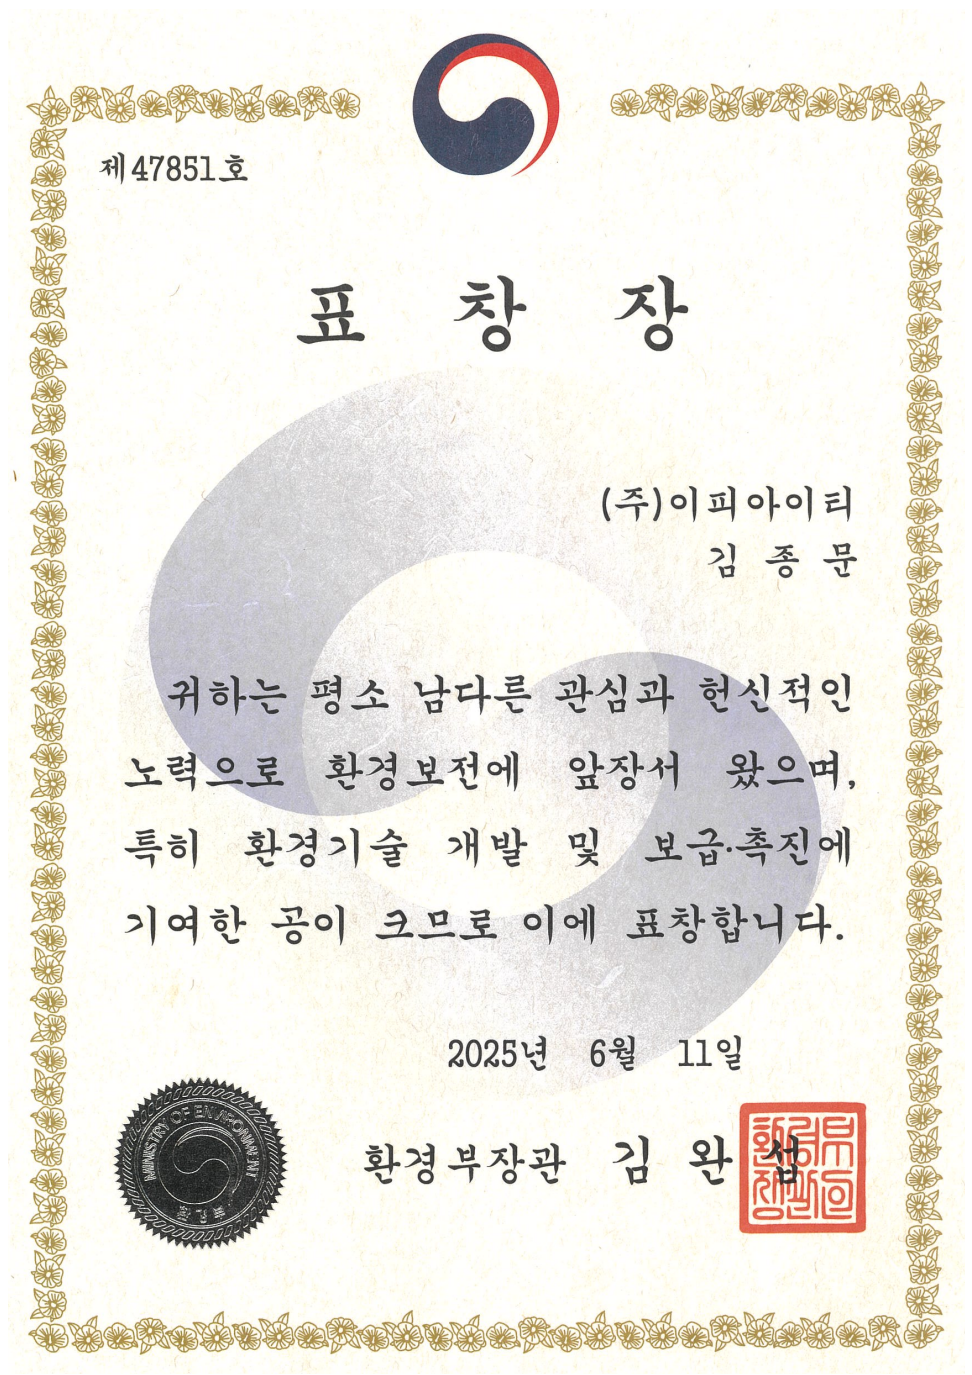 제47851호
표 창 장
(주)이피아이티
김 종 문
귀하는 평소 남다른 관심과 헌신적인
노력으로 환경보전에 앞장서 왔으며,
특히 환경기술 개발 및 보급·촉진에
기여한 공이 크므로 이에 표창합니다.
2025년 6월 11일
환경부장관 김 완 섭
MINISTRY OF ENVIRONMENT
환경부